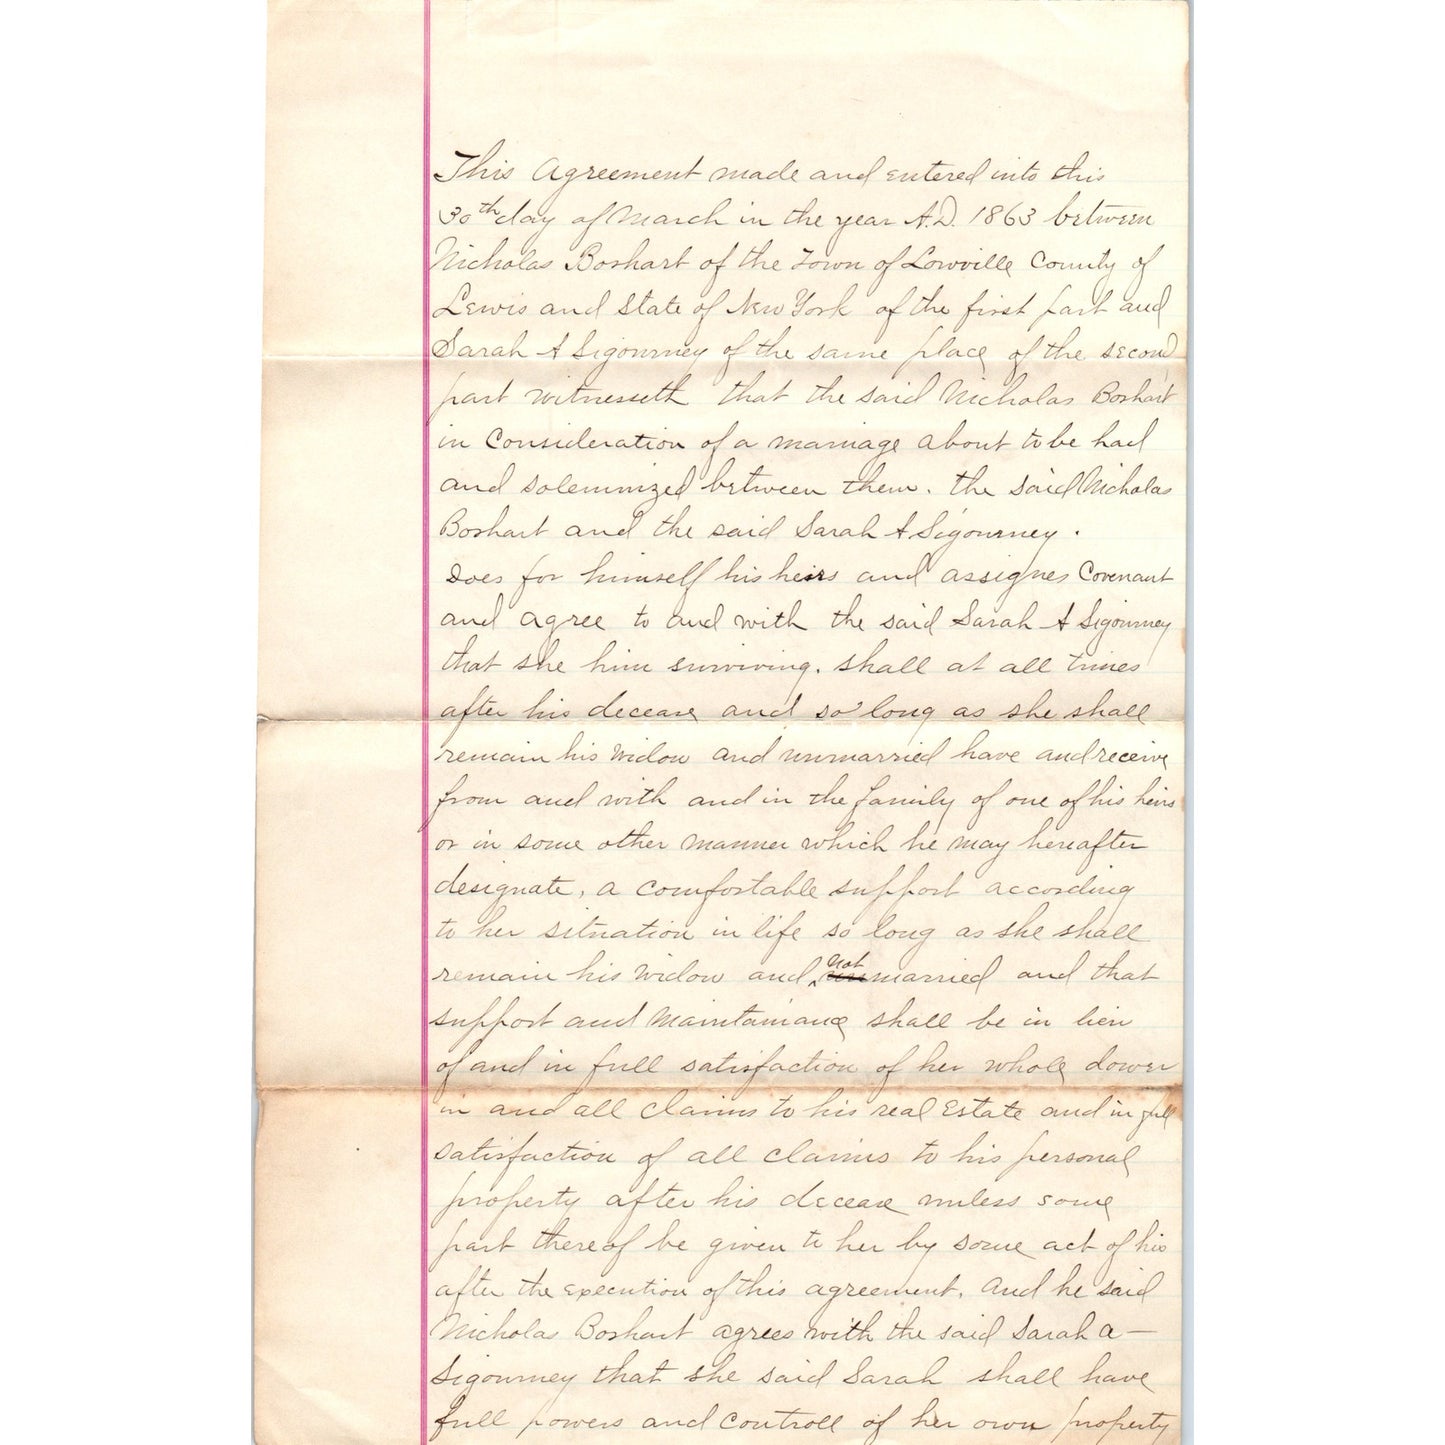 This Agreement made and entered into this
30th day of March in the year A.D. 1863 between
Nicholas Boshart of the Town of Lowville County of
Lewis and State of New York of the first part and
Sarah A Sigourney of the same place of the second
part witnesseth that the said Nicholas Boshart
in Consideration of a marriage about to be had
and solemnized between them. the said Nicholas
Boshart and the said Sarah A Sigourney.
Does for himself his heirs and assignes Covenant
and agree to and with the said Sarah A Sigourney
that she him surviving. shall at all times
after his decease and so long as she shall
remain his widow and unmarried have and receive
from and with and in the family of one of his heirs
or in some other manner which he may hereafter
designate, a comfortable support according
to her situation in life so long as she shall
not
remain his widow and unmarried and that
support and Maintainance shall be in lieu
of and in full satisfaction of her whole dower
in and all claims to his real Estate and in full
satisfaction of all claims to his personal
property after his decease unless some
part thereof be given to her by some act of his
after the execution of this agreement. And he said
Nicholas Boshart agrees with the said Sarah A—
Sigourney that she said Sarah shall have
full powers and controll of her own property